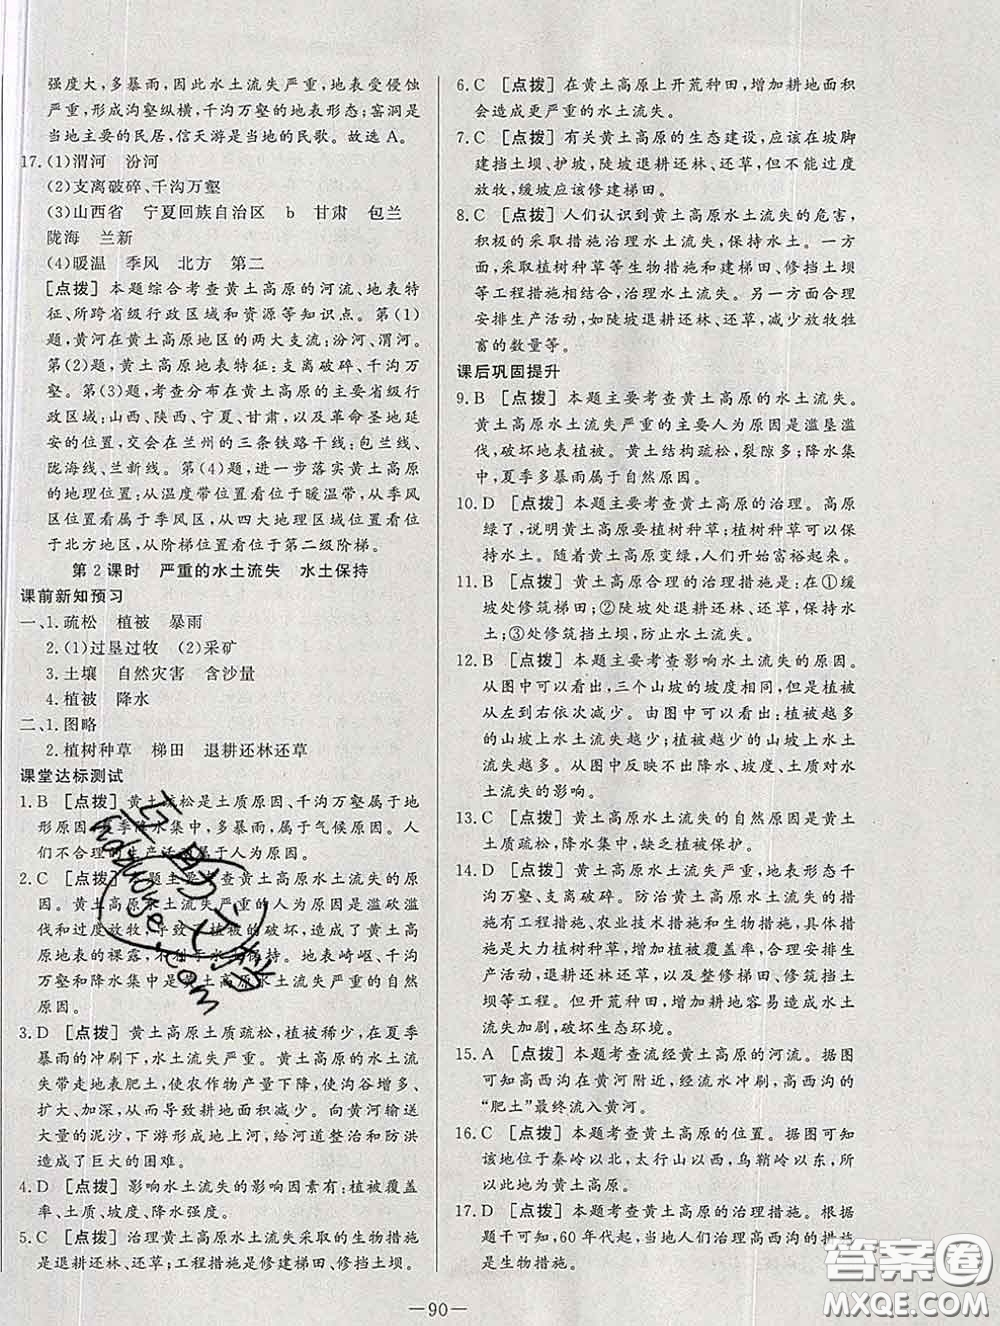 强度大,多暴雨,因此水土流失严重,地表受侵蚀
严重,形成沟壑纵横,千沟万壑的地表形态;窑洞是
当地主要的民居,信天游是当地的民歌。故选 A。
17. (1)渭河 汾河
(2)支离破碎、千沟万壑
(3)山西省 宁夏回族自治区 b 甘肃 包兰
陇海 兰新
(4)暖温 季风 北方 第二
[点拨] 本题综合考查黄土高原的河流、地表特
征、所跨省级行政区域和资源等知识点。第(1)
题,黄河在黄土高原地区的两大支流:汾河、渭河。
第(2)题,黄土高原地表特征:支离破碎、千沟万
壑。第(3)题,考查分布在黄土高原的主要省级行
政区域:山西、陕西、宁夏、甘肃,以及革命圣地延
安的位置,交会在兰州的三条铁路干线:包兰线、
陇海线、兰新线。第(4)题,进一步落实黄土高原
的地理位置:从温度带位置看位于暖温带,从季风
区位置看属于季风区,从四大地理区域位置看位
于北方地区,从阶梯位置看位于第二级阶梯。
第 2 课时 严重的水土流失 水土保持
课前新知预习
一、1.疏松 植被 暴雨
2.(1)过垦过牧 (2)采矿
3.土壤 自然灾害 含沙量
4.植被 降水
二、1.图略
2.植树种草 梯田 退耕还林还草
课堂达标测试
1.B [点拨] 黄土疏松是土质原因、千沟万壑属于地
形原因、夏季降水集中,多暴雨,属于气候原因。人
们不合理的生产活动属于人为原因。
2.C [点拨] 本题主要考查黄土高原水土流失的原
因。黄土高原水土流失严重的人为原因是滥砍滥
伐和过度放牧,导致了植被的破坏,造成了黄土高
原地表的裸露,不利于水土保持。地表崎岖、千沟
万壑和降水集中是黄土高原水土流失严重的自然
原因。
3.D [点拨] 黄土高原土质疏松,植被稀少,在夏季
暴雨的冲刷下,水土流失严重。黄土高原的水土流
失带走地表肥土,使农作物产量下降,使沟谷增多、
扩大、加深,从而导致耕地面积减少。向黄河输送
大量的泥沙,下游形成地上河,给河道整治和防洪
造成了巨大的困难。
4.D [点拨] 影响水土流失的影响因素有:植被覆盖
率、土质、坡度、降水强度。
5.C [点拨] 治理黄土高原水土流失采取的生物措施
是退耕还林、还草;工程措施是修建梯田、打挡土坝。
6.C [点拨] 在黄土高原上开荒种田,增加耕地面积
会造成更严重的水土流失。
7.C [点拨] 有关黄土高原的生态建设,应该在坡脚
建挡土坝、护坡,陡坡退耕还林、还草,但不能过度
放牧,缓坡应该修建梯田。
8.C [点拨] 人们认识到黄土高原水土流失的危害,
积极的采取措施治理水土流失,保持水土。一方
面,采取植树种草等生物措施和建梯田、修挡土坝
等工程措施相结合,治理水土流失。另一方面合理
安排生产活动,如陡坡退耕还林、还草,减少放牧牲
畜的数量等。
课后巩固提升
9.B [点拨] 本题主要考查黄土高原的水土流失。
黄土高原水土流失严重的主要人为原因是滥垦滥
伐,破坏地表植被。黄土结构疏松,裂隙多;降水集
中,夏季多暴雨属于自然原因。
10.D [点拨] 本题主要考查黄土高原的治理。高原
绿了,说明黄土高原要植树种草;植树种草可以保
持水土。随着黄土高原变绿,人们开始富裕起来。
11.B [点拨] 黄土高原合理的治理措施是:在①缓
坡处修筑梯田;②陡坡处退耕还林、还草,保持水
土;③处修筑挡土坝,防止水土流失。
12.B [点拨] 本题主要考查影响水土流失的原因。
从图中可以看出,三个山坡的坡度相同,但是植被
从左到右依次减少。由图可以看出:植被越多
的山坡上水土流失越少;植被越少的山坡上水土流
失越多。从图中反映不出降水、坡度、土质对水土流
失的影响。
13.C [点拨] 黄土高原水土流失的自然原因是黄土
土质疏松,降水集中,缺乏植被保护。
14.D [点拨] 黄土高原水土流失,地表形态千沟
万壑、支离破碎。防治黄土高原水土流失的措
施有工程措施、农业技术措施和生物措施,具体
措施是大力植树种草,增加植被覆盖率,合理安排生
产活动,退耕还林还草,以及整修梯田、修筑挡土
坝等工程。但开荒种田,增加耕地容易造成水土
流失加剧,破坏生态环境。
15.A [点拨] 本题考查流经黄土高原的河流。据图
可知高西沟在黄河附近,经流水冲刷,高西沟的
“肥土”最终流入黄河。
16.C [点拨] 本题考查黄土高原的位置。据图可知
该地位于秦岭以北,太行山以西,乌鞘岭以东,所
以此地为黄土高原。
17.D [点拨] 本题考查黄土高原的治理措施。根据
题干可知,60 年代起,当地人们治理高西沟的措施
是生物措施。
—90—
答案圈
MXQE.COM